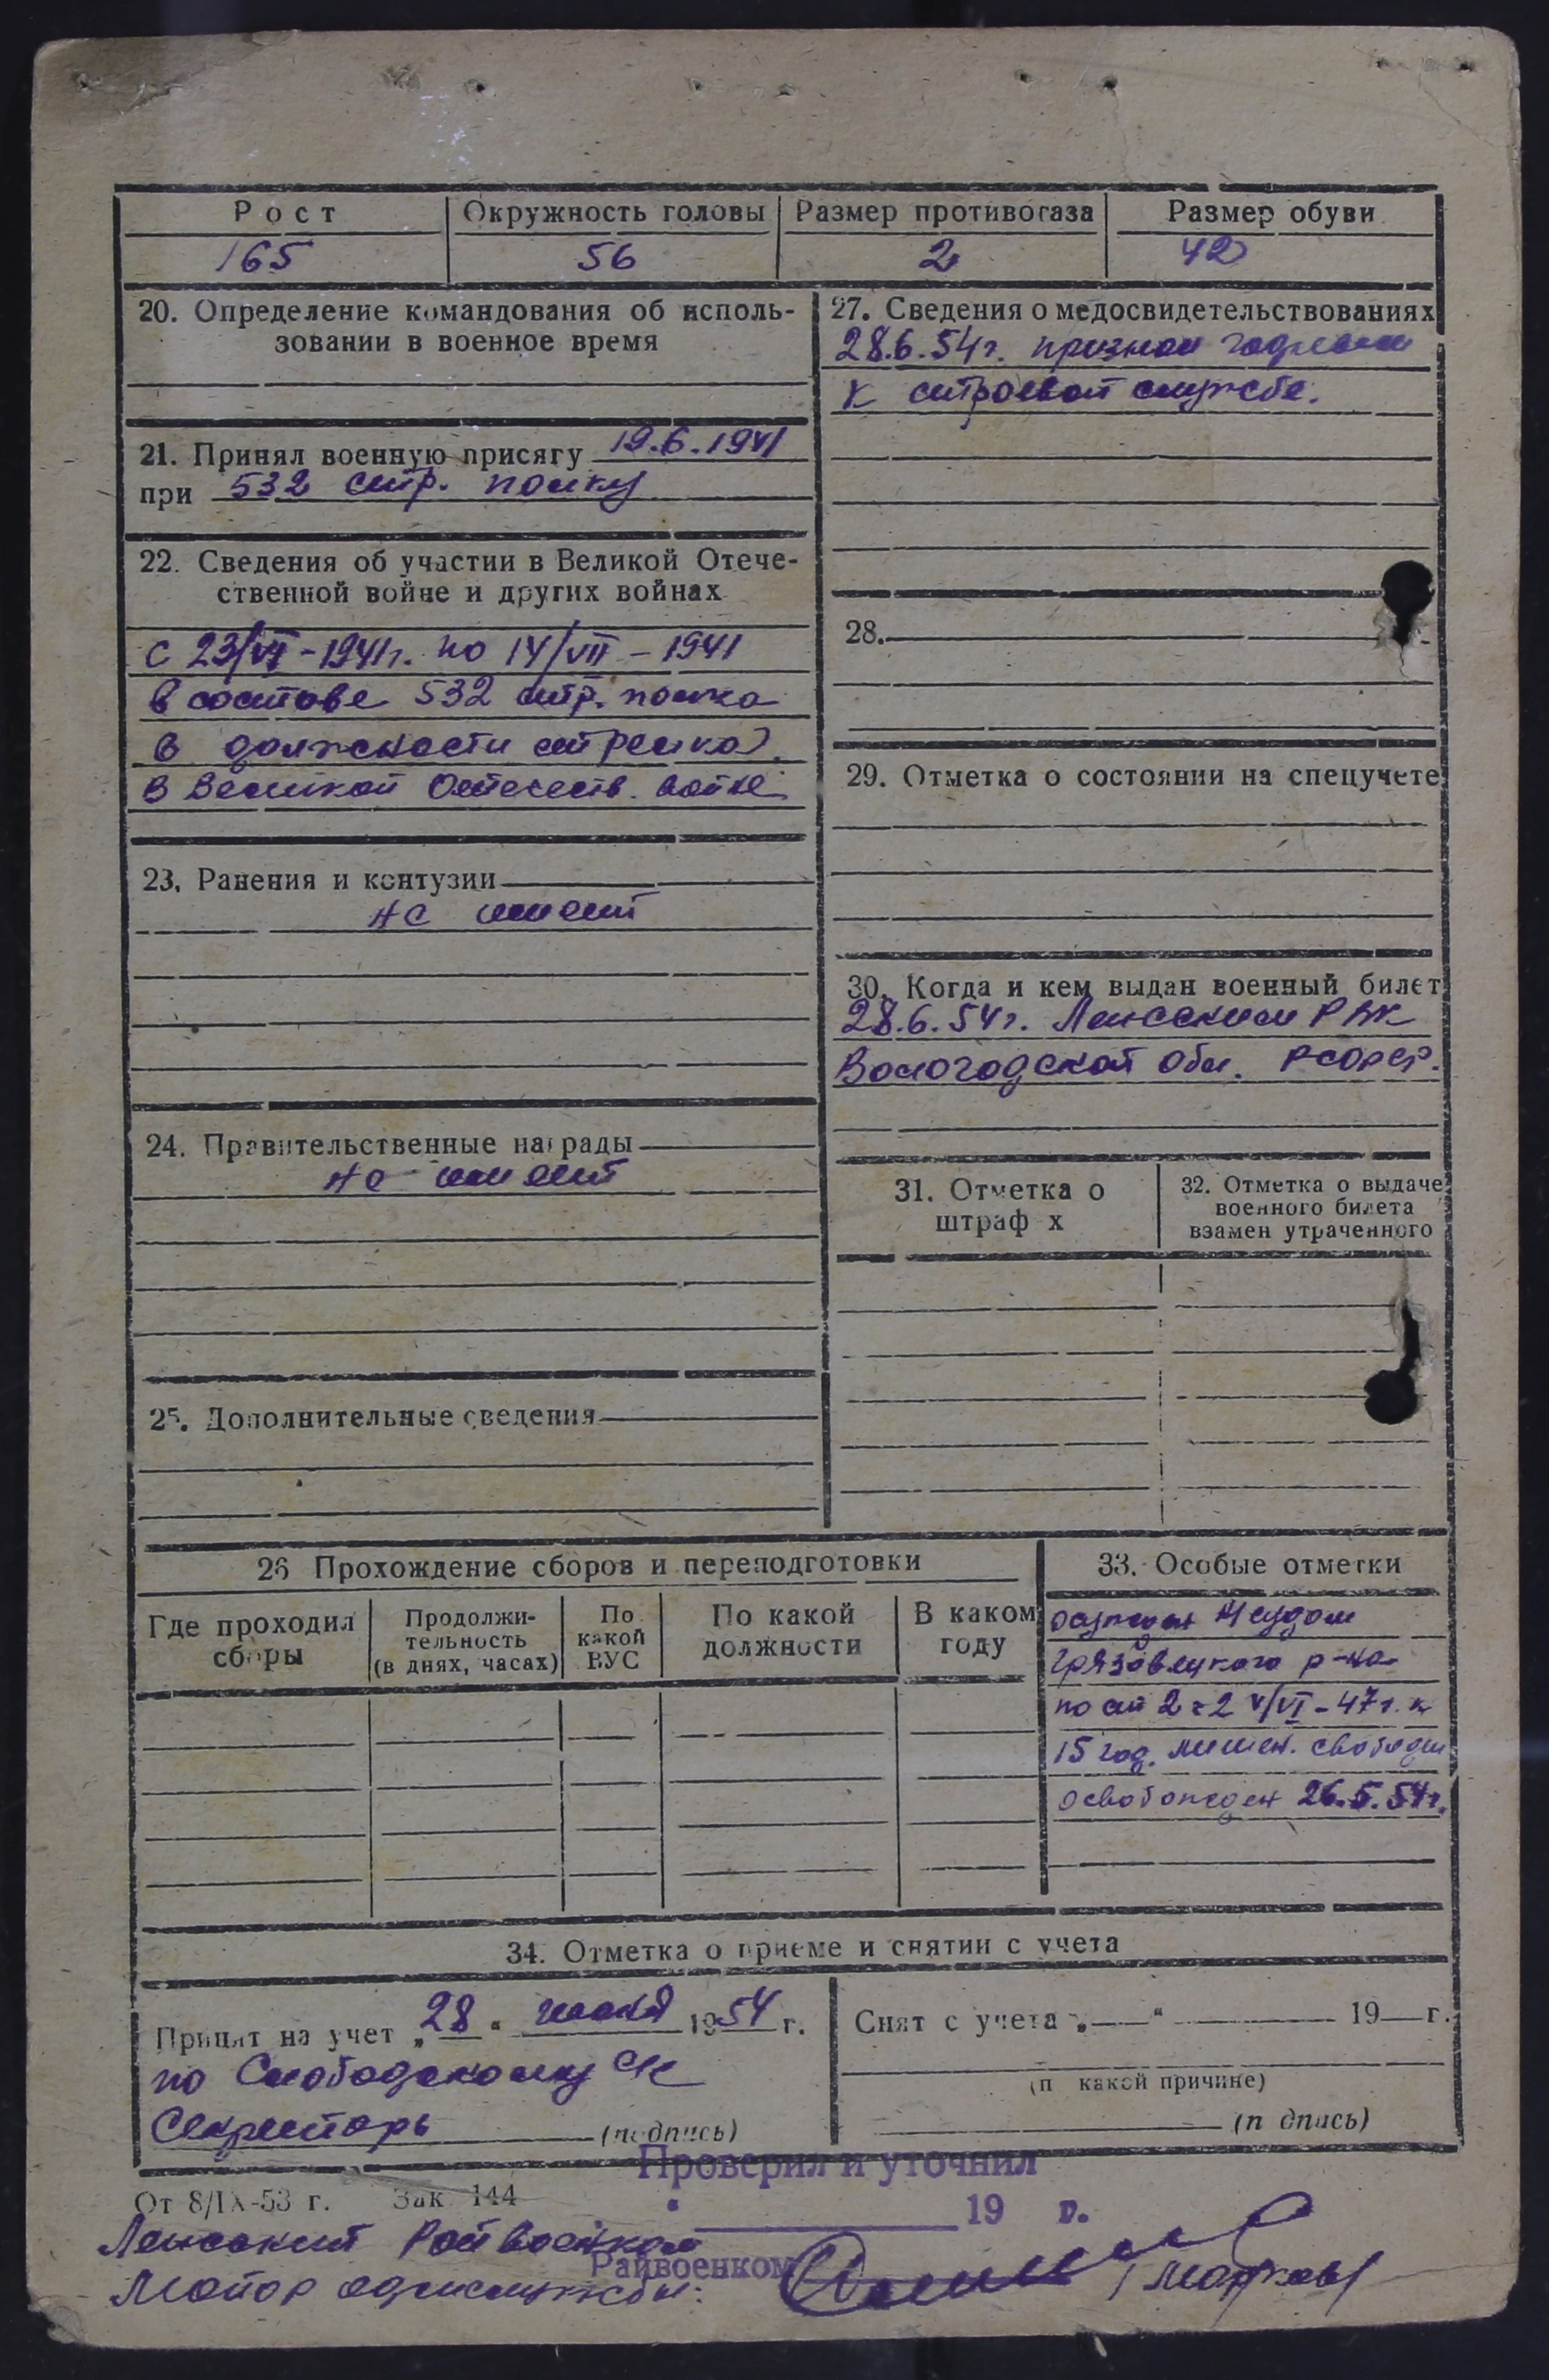 Рост
Окружность головы
Размер противогаза
Размер обуви
165
56
2
42
20. Определение командования об исполь-
зовании в военное время
21. Принял военную присягу 19.6.1941
при 532 стр. полку
22. Сведения об участии в Великой Отече-
ственной войне и других войнах
с 23/VI-1941г. по 14/VII-1941
в составе 532 стр. полка
в должности стрелка.
в Великой Отечеств. войне
23. Ранения и контузии
не имеет
24. Правительственные награды
не имеет
25. Дополнительные сведения
27. Сведения о медосвидетельствованиях
28.6.54г. признан годным
к строевой службе.
28.
29. Отметка о состоянии на спецучете
30. Когда и кем выдан военный билет
28.6.54г. Ленским РВК
Вологодской обл. РСФСР.
31. Отметка о
штраф х
32. Отметка о выдаче
военного билета
взамен утраченного
26 Прохождение сборов и переподготовки
Где проходил
сборы
Продолжи-
тельность
(в днях, часах)
По
какой
ВУС
По какой
должности
В каком
году
33. Особые отметки
осужден Нсудом
Грязовецкого р-на
по ст 2 ч 2 4/VI-47г. к
15 год. лишен. свободы
освобожден 26.5.54г.
34. Отметка о приеме и снятии с учета
Принят на учет „28" июня 1954 г.
по Слободскому с/с
Секретарь (подпись)
Снят с учета „ " 19 г.
(п какой причине)
(п дпись)
Проверил и уточнил
19 г.
От 8/IX-53 г. Зак 144
Райвоенком
Ленский Райвоенком
Майор адмслужбы: /Марков/